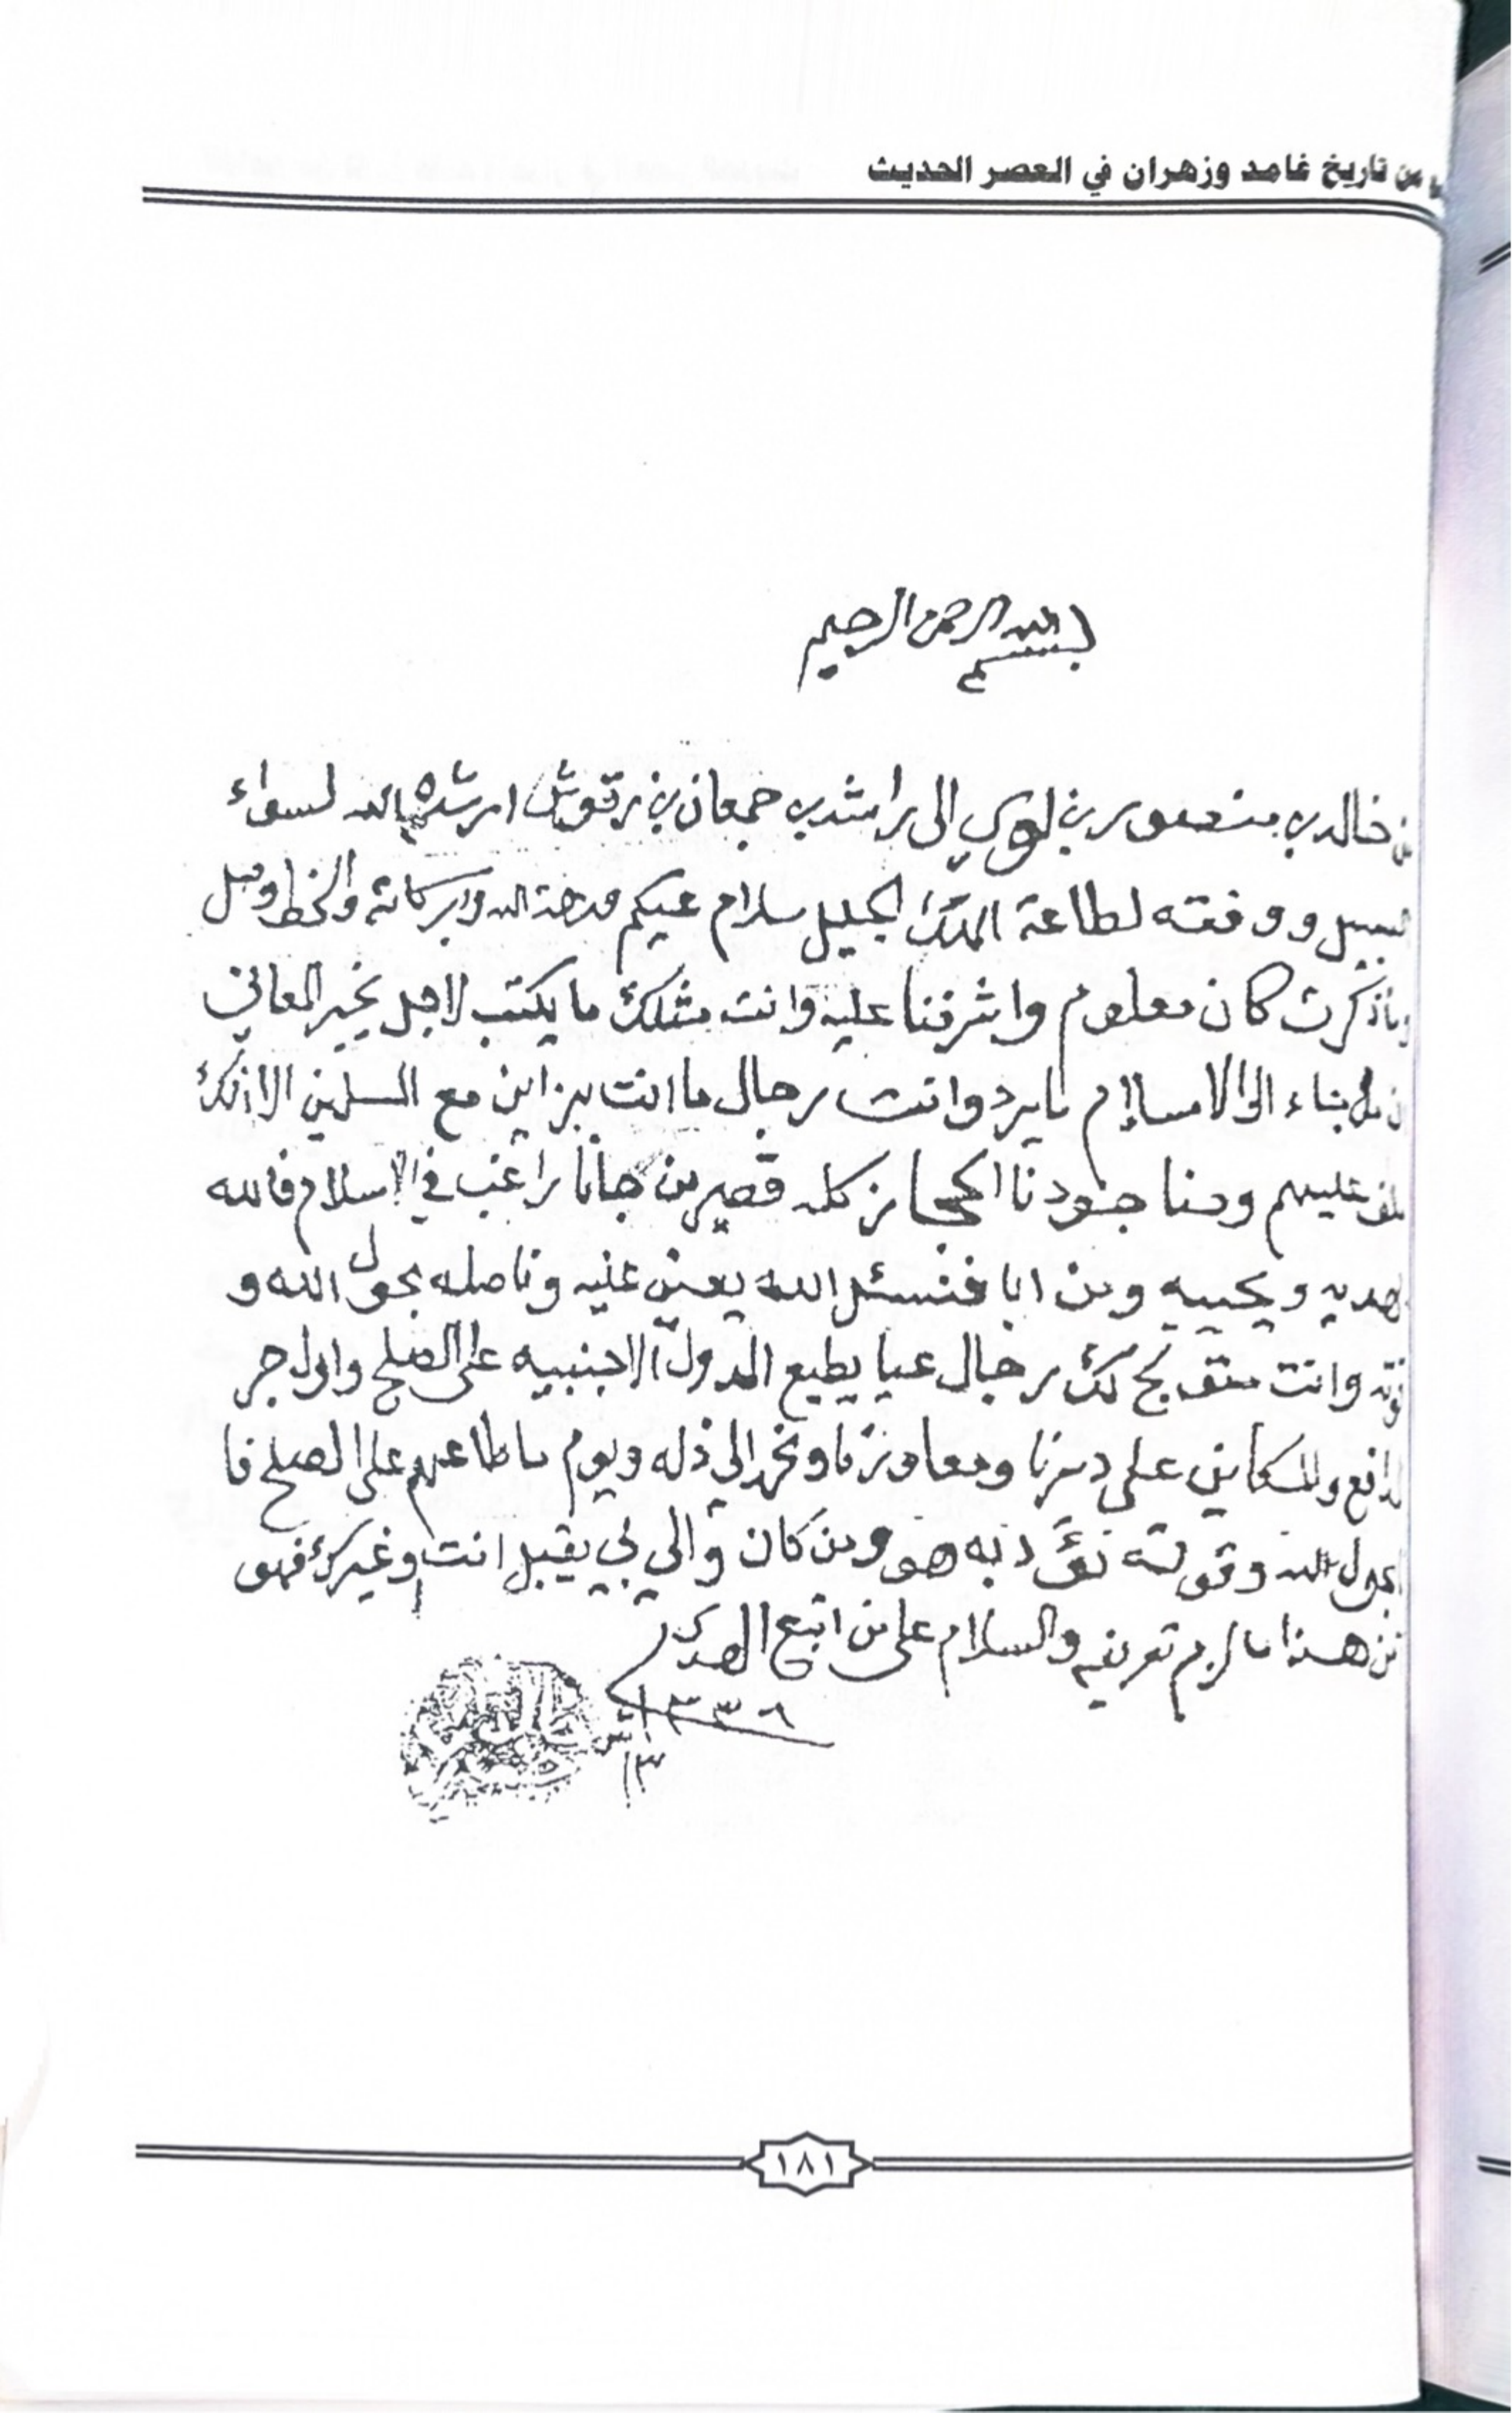 من تاريخ غامد وزهران في العصر الحديث
بسم الله الرحمن الرحيم
من خالد بن منصور بن لوي الى راشد بن جمعان بن رقوش ارشده الله لسواء
السبيل ووفقه لطاعة الملك الجليل سلام عيكم ورحمة الله وابركاته والخط وصل
وماذكرت كان معلوم واشرفنا عليه وانت مثلك ما يكتب لاجل يخبر المعاني
من جاء الى الاسلام ما يرد وانت رجال ما انت براين مع المسلمين الا انك
عليهم وحنا جنودنا الحجاز كله قصير من جانا راغب في الاسلام فالله
يهديه ويحييه ومن ابا فنسئل الله يعين عليه وناصله بحول الله و
قوته وانت رجال عيا يطيع الدول الاجنبيه على الصلح واول اجر
المدافع والمكاين على ديرنا ومعاوننا ويوم ما طاعهم على الصلح فا
بحول الله وقوته به هو ومن كان والي يبي يقبل انت وغيرك فهو
هذا مالزم تعريفه والسلام على من اتبع الهدى
١٣٣٦
١٨١